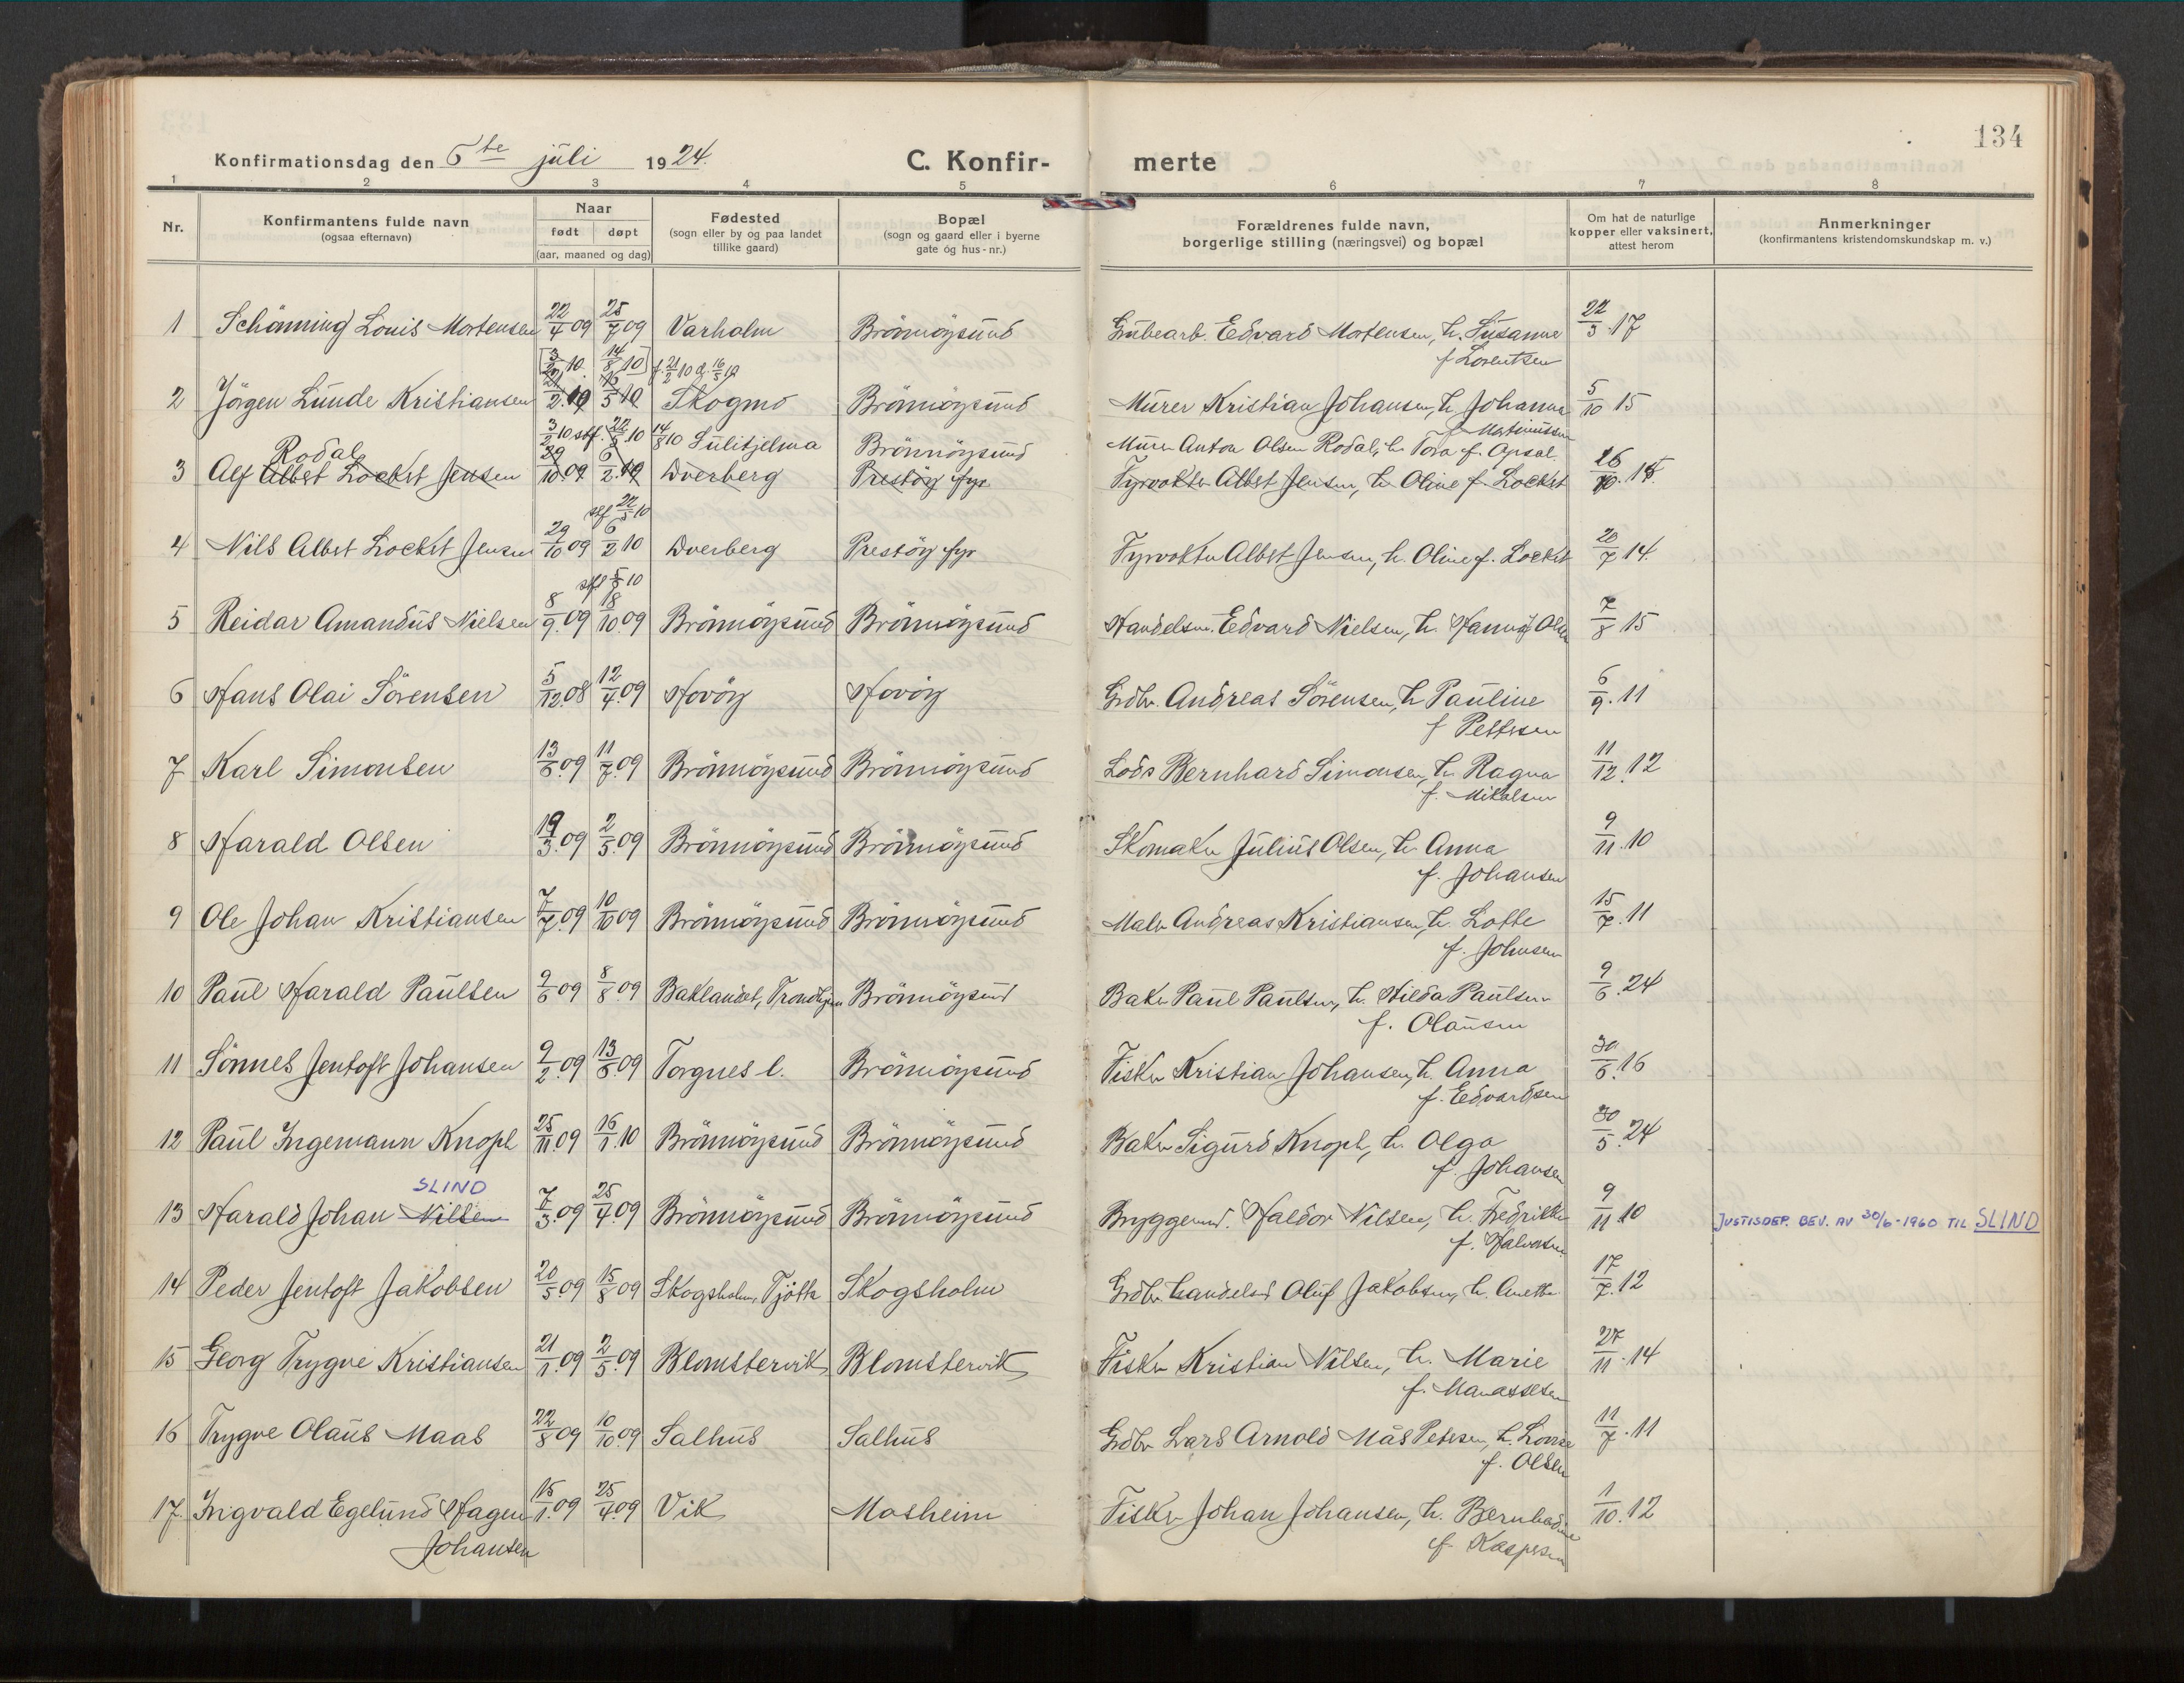 134
Konfirmationsdag den 6te juli 1924.
C. Konfir-
merte
1 2 3 4 5 6 7 8
Nr.
Konfirmantens fulde navn
(ogsaa efternavn)
Naar
født døpt
(aar, maaned og dag)
Fødested
(sogn eller by og paa landet
tillike gaard)
Bopæl
(sogn og gaard eller i byerne
gate og hus-nr.)
Forældrenes fulde navn,
borgerlige stilling (næringsvei) og bopæl
Om hat de naturlige
kopper eller vaksinert,
attest herom
Anmerkninger
(konfirmantens kristendomskundskap m. v.)
1 Schönning Louis Mortensen 22/4 09 25/7 09 Varholm Brönnöysund Grubearb. Edvard Mortensen, h. Susanne 22/3.17
f Lorentsen
[3/2 10. 14/8 10] f. 21/2 10 d. 16/5 10
2 Jörgen Lunde Kristiansen 21/2.10 16/5 10 Skogmo Brönnöysund Murer Kristian Johansen, h. Johanna 5/10 15
f Martinussen
3/2 10 stf. 22/5 10 14/8 10 Sulitjelma Brönnöysund Murer Anton Olsen Rodal, h. Tora f. Opsal.
Rodal
3 Alf Albert Lockert Jensen 29/10 09 6/2.10 Dverberg Prestöy fyr Fyrvokter Albert Jensen, h. Oline f. Lockert
stf 22/5 10
4 Nils Albert Lockert Jensen 29/10 09 6/2 10 Dverberg Prestöy fyr Fyrvokter Albert Jensen, h. Oline f. Lockert 20/7 14.
stf 5/5 10
5 Reidar Amandus Nielsen 8/9.09 18/10.09 Brönnöysund Brönnöysund Handelsm. Edvard Nielsen, h. Hanna f Olsen 7/8 15
6 Hans Olai Sörensen 5/12.08 12/4.09 Havöy Havöy Grdbr. Andreas Sörensen, h Pauline 6/9.11
f Pettersen
7 Karl Simonsen 13/6.09 11/7.09 Brönnöysund Brönnöysund Lods Bernhard Simonsen, h. Ragna 11/12.12
f. Mikalsen
8 Harald Olsen 19/3.09 2/5.09 Brönnöysund Brönnöysund Skomaker Julius Olsen, h. Anna 9/11.10
f. Johansen
9 Ole Johan Kristiansen 7/7.09 10/10 09 Brönnöysund Brönnöysund Maler Andreas Kristiansen, h. Lotte 15/7.11
f. Johnsen
10 Paul Harald Paulsen 9/6 09 8/8.09 Baklandet, Trondhjem Brönnöysund Baker Paul Paulsen, h. Hilda Paulsen 9/6.24
f. Olausen
11 Sönnes Jentoft Johansen 9/2.09 13/6.09 Torgnes l. Brönnöysund Fisker Kristian Johansen, h. Anna 30/6.16
f. Edvardsen
12 Paul Ingemann Knoph 25/11.09 16/1.10 Brönnöysund Brönnöysund Baker Sigurd Knoph, h. Olga 30/5.24
f. Johansen
SLIND
13 Harald Johan Nilsen 7/3.09 25/4.09 Brönnöysund Brönnöysund Bryggemd. Haldor Nilsen, h. Fredrikke 9/11.10 JUSTISDEP. BEV. AV 30/6-1960 TIL SLIND
f. Halvorsen
14 Peder Jentoft Jakobsen 20/5.09 15/8 09 Skogsholm, Tjötta Skogsholm Grdbr. handelsd Oluf Jakobsen, h. Anette 17/7.12
15 Georg Trygve Kristiansen 21/1.09 2/5.09 Blomstervik Blomstervik Fisker Kristian Nilsen, h. Marie 27/11.14
f. Manassesen
16 Trygve Olaus Maas 22/8 09 10/10.09 Salhus Salhus Grdbr Lars Arnold Mås Petersen, h. Lovise 11/7.11
f. Olsen
17. Ingvald Egelund Hagen 15/1.09 25/4.09 Vik Mosheim Fisker Johan Johansen, h. Bernhardine 1/10.12
Johansen f. Kaspersen